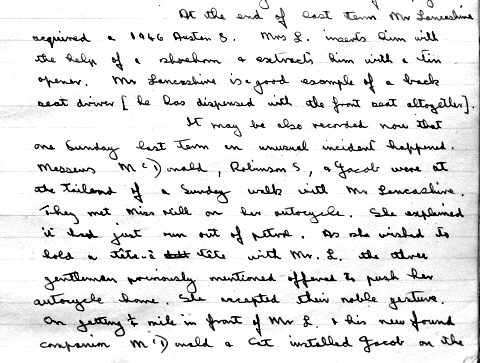 At the end of last term Mr Lancashire
acquired a 1946 Austen S. Mrs L. inserts him with
the help of a shoehorn & extracts him with a tin
opener. Mr Lancashire is a good example of a back
seat driver [he has dispensed with the front seat altogether].
It may be also recorded now that
one Sunday last term an unusual incident happened.
Messeurs McDonald, Robinson S, & Jacob were at
the tailand of a Sunday walk with Mr Lancashire.
They met Miss Hill on her autocycle. She explained
it had just run out of petrol. As she wished to
hold a tête-à tête with Mr. L. the three
gentleman previously mentioned offered to push her
autocycle home. She accepted their noble gesture.
On getting ½ mile in front of Mr L. & his new found
companion McDonald & Co. installed Jacob on the